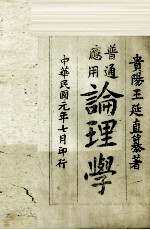 貴陽王延直纂著
普通
應用
論理學
中華民國元年七月印行